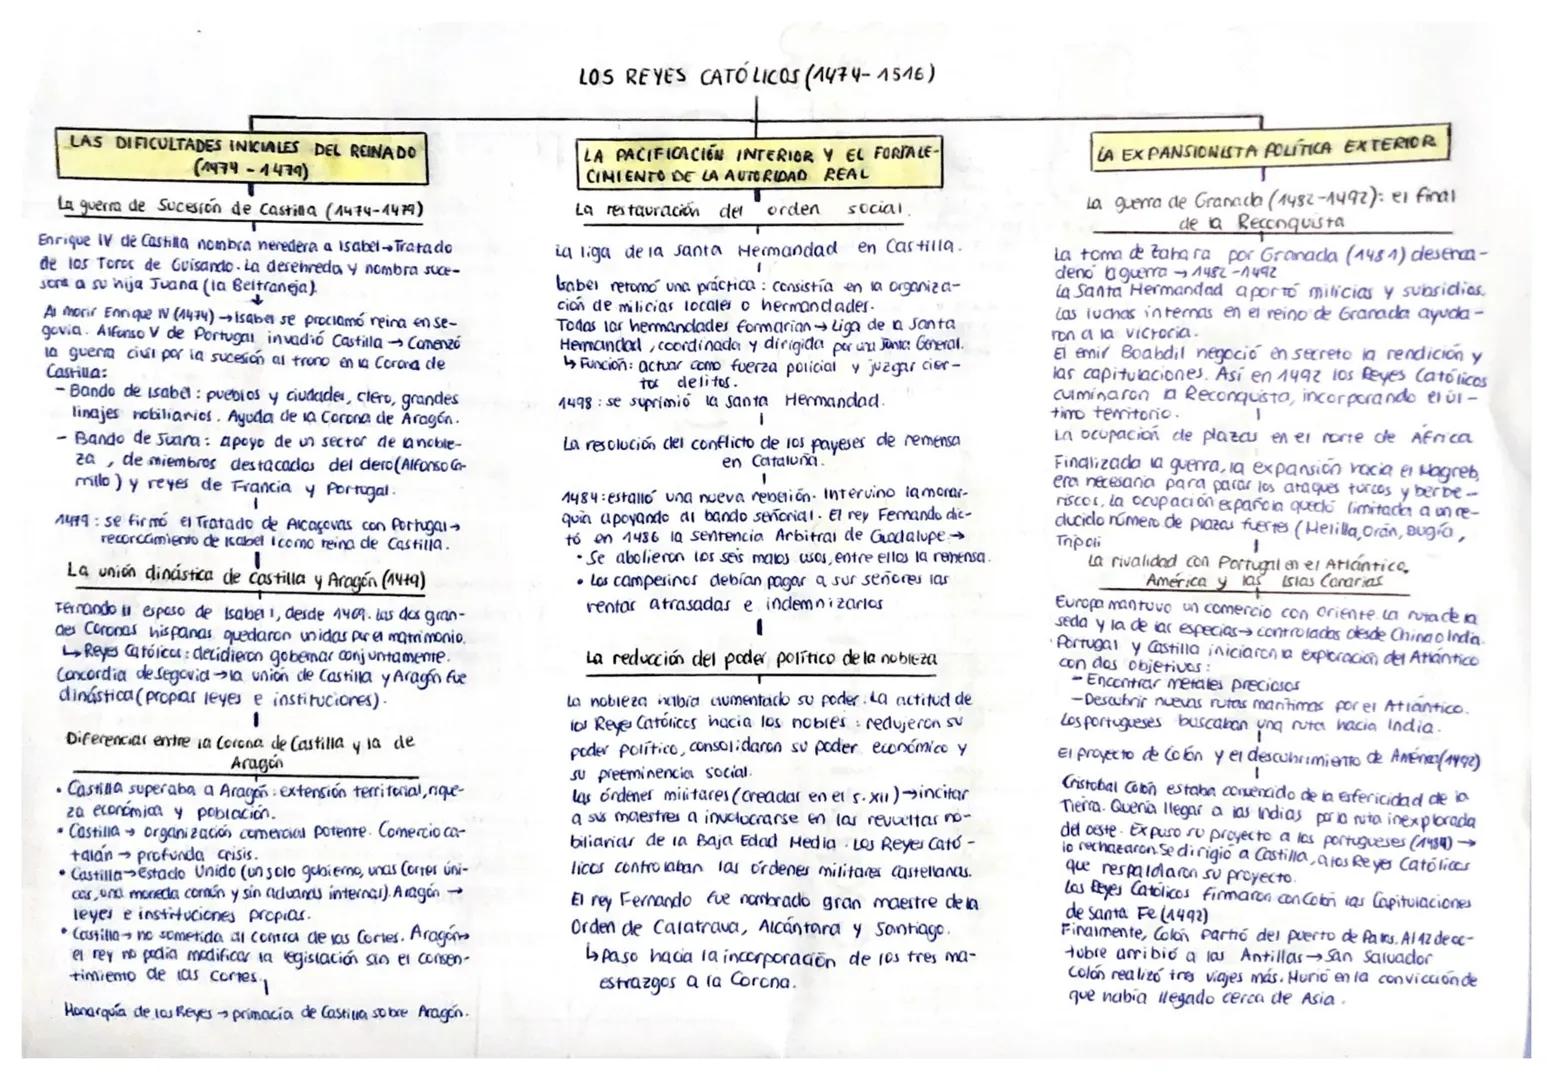 LOS REYES CATÓLICOS (1474-1516)
LAS DIFICULTADES INICIALES DEL REINADO
(1474-1479)
La guerra de Sucesión de Castilla (1474-1479)
Enrique IV de Castilla nombra heredera a Isabel→Tratado
de los Toros de Guisando. La desehreda y nombra suce-
sora a su hija Juana (la Beltraneja).
Al morir Enrique IV (1474)→Isabel se proclamó reina en Se-
govia. Alfonso V de Portugal invadió Castilla → Comenzó
la guerra civil por la sucesión al trono en la Corona de
Castilla:
- Bando de Isabel: pueblos y ciudades, clero, grandes
linajes nobiliarios. Ayuda de la Corona de Aragón.
- Bando de Juana: apoyo de un sector de la noble-
za, de miembros destacados del clero (Alfonso Ca-
rrillo) y reyes de Francia y Portugal.
1479: se firmó el Tratado de Alcaçovas con Portugal→
reconocimiento de Isabel I como reina de Castilla.
La unión dinástica de Castilla y Aragón (1479)
Fernando II esposo de Isabel I, desde 1469. Las dos gran-
des Coronas hispanas quedaron unidas por el matrimonio.
↳ Reyes Católicos: decidieron gobernar conjuntamente.
Concordia de Segovia→la unión de Castilla y Aragón fue
dinástica (propias leyes e instituciones).
Diferencias entre la Corona de Castilla y la de
Aragón
• Castilla superaba a Aragón: extensión territorial, rique-
za económica y población.
• Castilla → organización comercial potente. Comercio ca-
talán → profunda crisis.
• Castilla→Estado Unido (un solo gobierno, unas Cortes úni-
cas, una moneda común y sin aduanas internas). Aragón →
leyes e instituciones propias.
• Castilla→ no sometida al control de las Cortes. Aragón→
el rey no podía modificar la legislación sin el consen-
timiento de las cortes.
Monarquía de los Reyes → primacía de Castilla sobre Aragón.
LA PACIFICACIÓN INTERIOR Y EL FORTALE-
CIMIENTO DE LA AUTORIDAD REAL
La restauración del orden social.
La liga de la Santa Hermandad en Castilla.
Isabel retomó una práctica: consistía en la organiza-
ción de milicias locales o hermandades.
Todas las hermandades formarían→ Liga de la Santa
Hermandad, coordinada y dirigida por una Junta General.
↳ Función: actuar como fuerza policial y juzgar cier-
tos delitos.
1498: se suprimió la Santa Hermandad.
La resolución del conflicto de los payeses de remensa
en Cataluña.
1484: estalló una nueva rebelión. Intervino la monar-
quía apoyando al bando señorial. El rey Fernando dic-
tó en 1486 la Sentencia Arbitral de Guadalupe→
• Se abolieron los seis malos usos, entre ellos la remensa.
• Los campesinos debían pagar a sus señores las
rentas atrasadas e indemnizarlos
La reducción del poder político de la nobleza
La nobleza había aumentado su poder. La actitud de
los Reyes Católicos hacia los nobles: redujeron su
poder político, consolidaron su poder económico y
su preeminencia social.
Las órdenes militares (creadas en el s. XII)→incitar
a sus maestres a involucrarse en las revueltas no-
biliarias de la Baja Edad Media. Los Reyes Cató-
licos controlaban las órdenes militares castellanas.
El rey Fernando fue nombrado gran maestre de la
Orden de Calatrava, Alcántara y Santiago.
↳ Paso hacia la incorporación de los tres ma-
estrazgos a la Corona.
LA EXPANSIONISTA POLÍTICA EXTERIOR
La guerra de Granada (1482-1492): el final
de la Reconquista
La toma de Zahara por Granada (1481) desenca-
denó la guerra → 1482-1492
La Santa Hermandad aportó milicias y subsidios.
Las luchas internas en el reino de Granada ayuda-
ron a la victoria.
El emir Boabdil negoció en secreto la rendición y
las capitulaciones. Así en 1492 los Reyes Católicos
culminaron la Reconquista, incorporando el úl-
timo territorio.
La ocupación de plazas en el norte de África
Finalizada la guerra, la expansión hacia el Magreb,
era necesaria para parar los ataques turcos y berbe-
riscos. La ocupación española quedó limitada a un re-
ducido número de plazas fuertes (Melilla, Orán, Bugía,
Trípoli
La rivalidad con Portugal en el Atlántico,
América y las Islas Canarias
Europa mantuvo un comercio con Oriente. La ruta de la
seda y la de las especias→ controladas desde China o India.
Portugal y Castilla iniciaron la exploración del Atlántico
con dos objetivos:
- Encontrar metales preciosos
- Descubrir nuevas rutas marítimas por el Atlántico.
Los portugueses buscaban una ruta hacia India.
El proyecto de Colón y el descubrimiento de América (1492)
Cristobal Colón estaba convencido de la esfericidad de la
Tierra. Quería llegar a las Indias por la ruta inexplorada
del oeste. Expuso su proyecto a los portugueses (1484) →
lo rechazaron. Se dirigió a Castilla, a los Reyes Católicos
que respaldaron su proyecto.
Los Reyes Católicos firmaron con Colón las Capitulaciones
de Santa Fe (1492)
Finalmente, Colón partió del puerto de Palos. Al 12 de oc-
tubre arribió a las Antillas→ San Salvador
Colón realizó tres viajes más. Murió en la convicción de
que había llegado cerca de Asia.